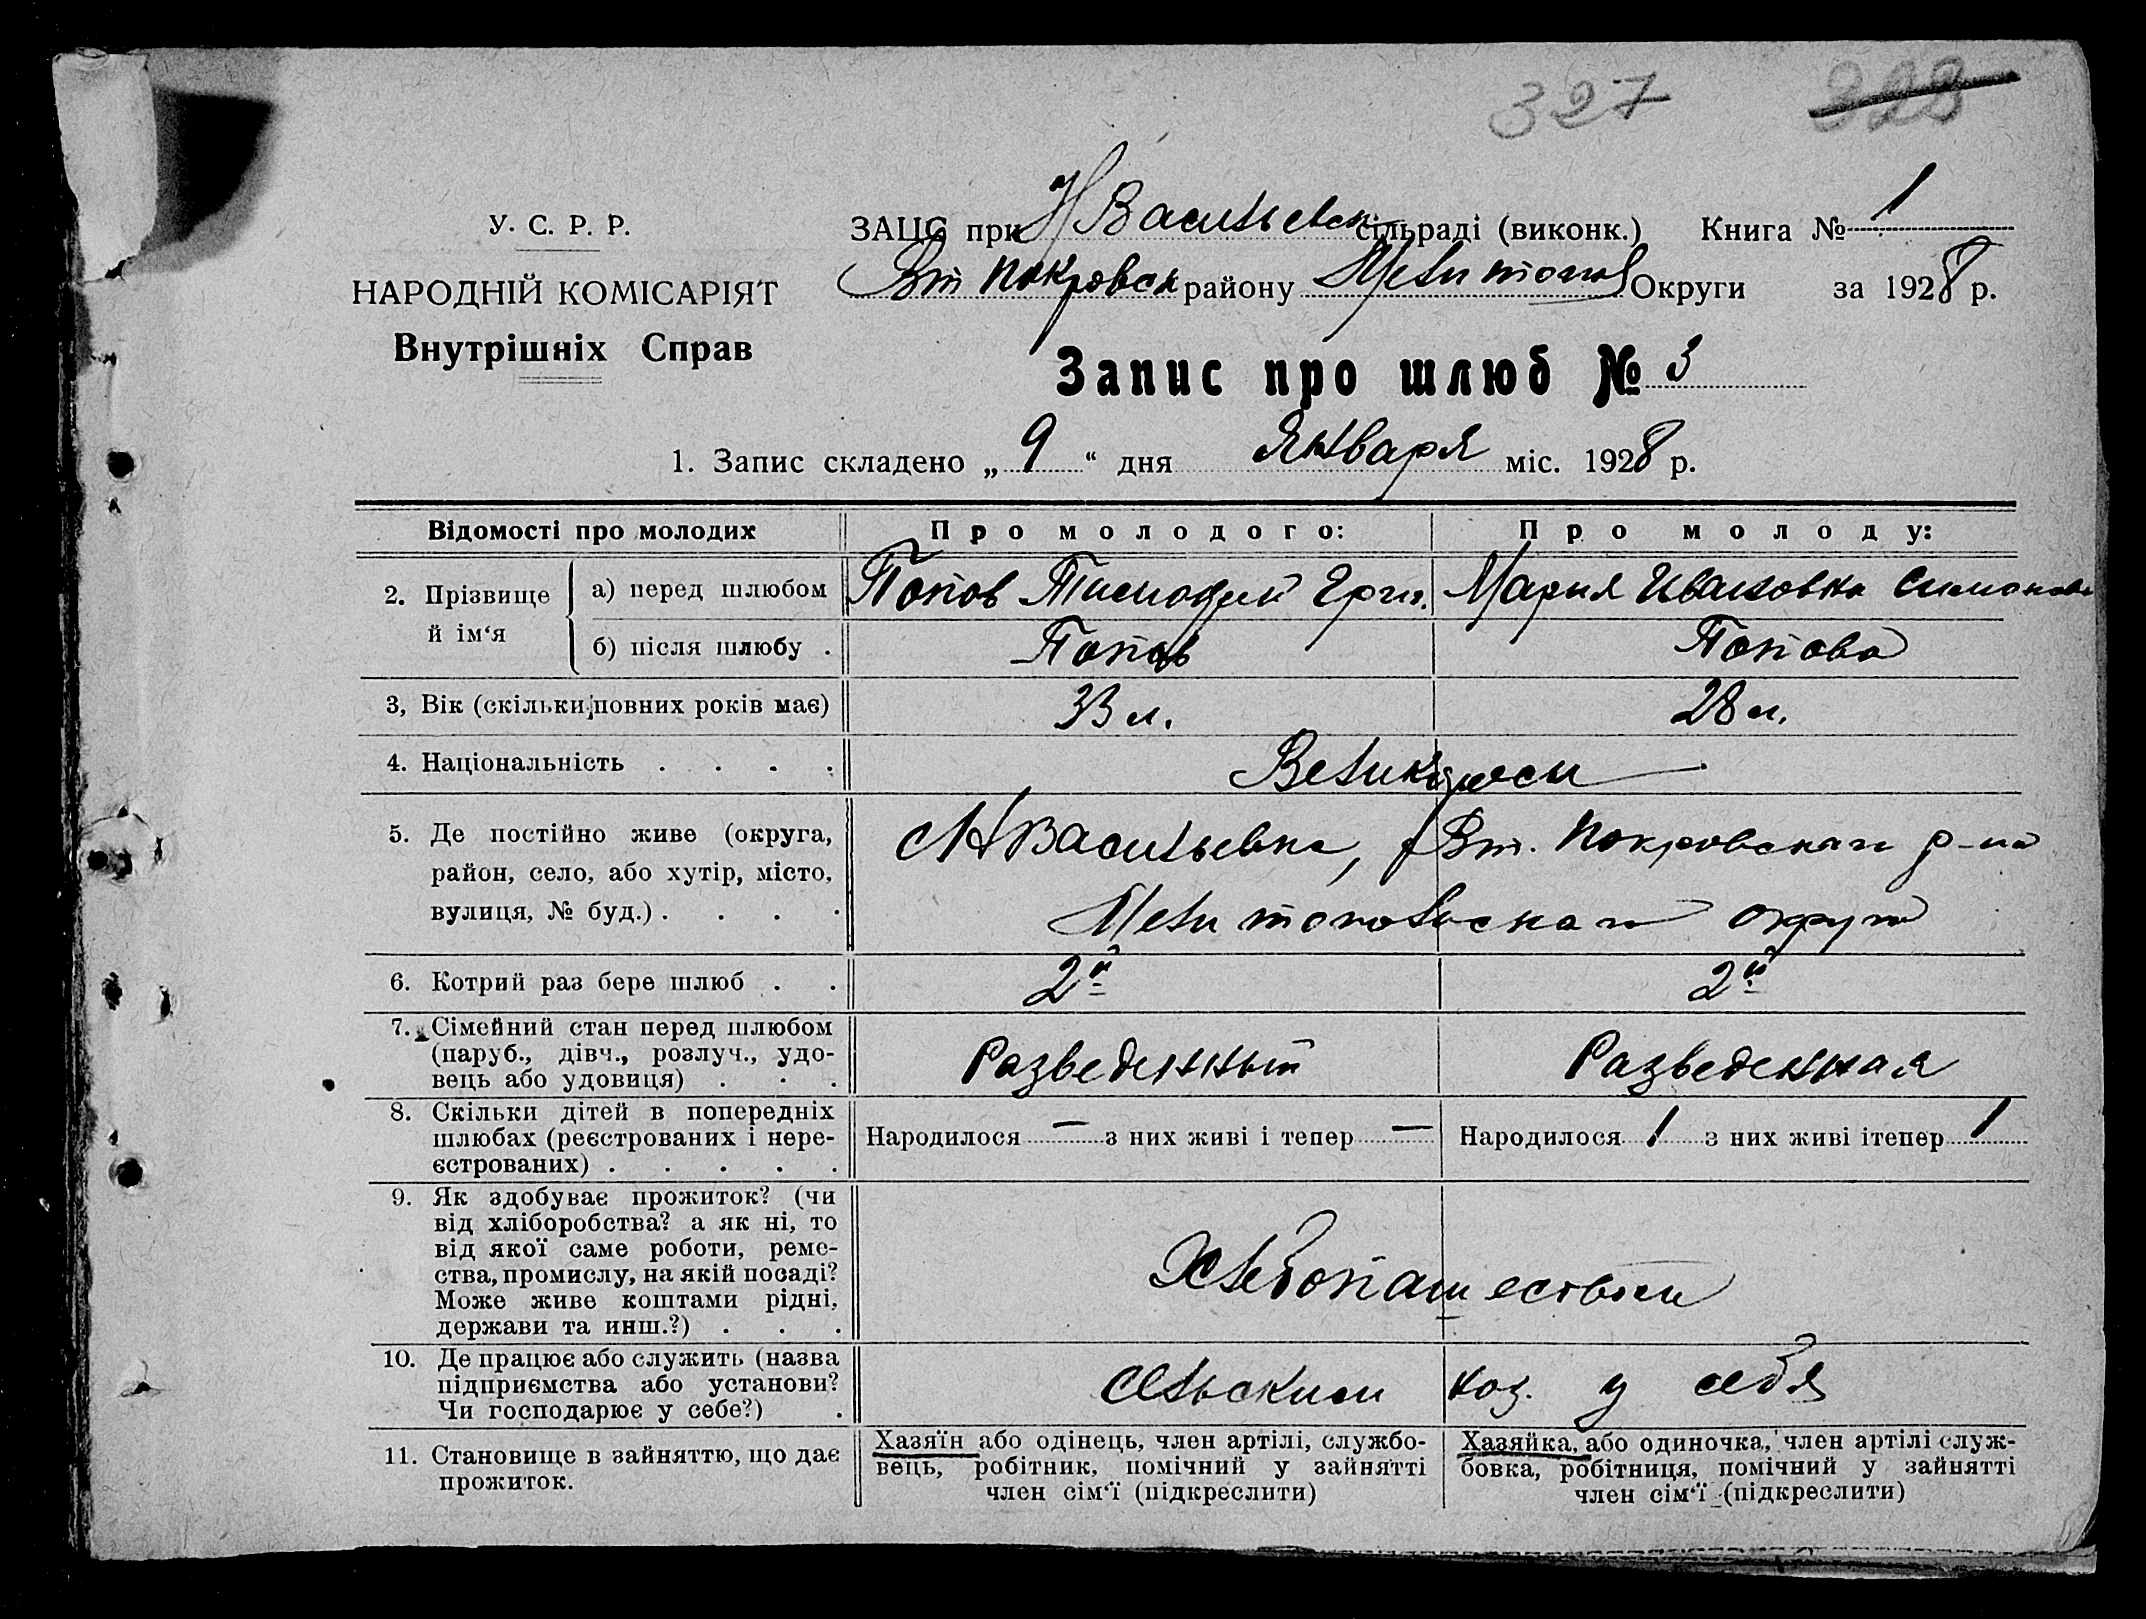 327 328
У. С. Р. Р.
НАРОДНІЙ КОМІСАРІЯТ
Внутрішніх Справ
ЗАЦС при Н Васильевск сільраді (виконк.) Книга № 1
Вт Покровск району Мелитопол Округи за 1928 р.
Запис про шлюб № 3
1. Запис складено „ 9 “ дня Января міс. 1928 р.
Відомості про молодих Про молодого: Про молоду:
2. Прізвище й ім‘я
а) перед шлюбом Попов Тимофей Ерг. Мария Ивановна Симонова
б) після шлюбу . Попов Попова
3, Вік (скільки повних років має) 33 л. 28 л.
4. Національність . . . . Великоросы
5. Де постійно живе (округа, Н Васильевка, Вт. Покровскаго р-на
район, село, або хутір, місто,
вулиця, № буд.) . . . . Мелитопольскаго округа
6. Котрий раз бере шлюб . . 2й 2й
7. Сімейний стан перед шлюбом
(паруб., дівч., розлуч., удо- Разведенный Разведенная
вець або удовиця) . . .
8. Скільки дітей в попередніх
шлюбах (реєстрованих і нере- Народилося — з них живі і тепер — Народилося 1 з них живі ітепер 1
єстрованих) . . . . .
9. Як здобуває прожиток? (чи
від хліборобства? а як ні, то
від якої саме роботи, реме-
ства, промислу, на якій посаді? Хлебопашеством
Може живе коштами рідні,
держави та инш.?) . . .
10. Де працює або служить (назва
підприємства або установи? Сельским хоз. у себя
Чи господарює у себе?) .
11. Становище в зайняттю, що дає
прожиток.
Хазяїн або одінець, член артілі, службо-
вець, робітник, помічний у зайнятті
член сім‘ї (підкреслити)
Хазяйка, або одиночка, член артілі служ-
бовка, робітниця, помічний у зайнятті
член сім‘ї (підкреслити)